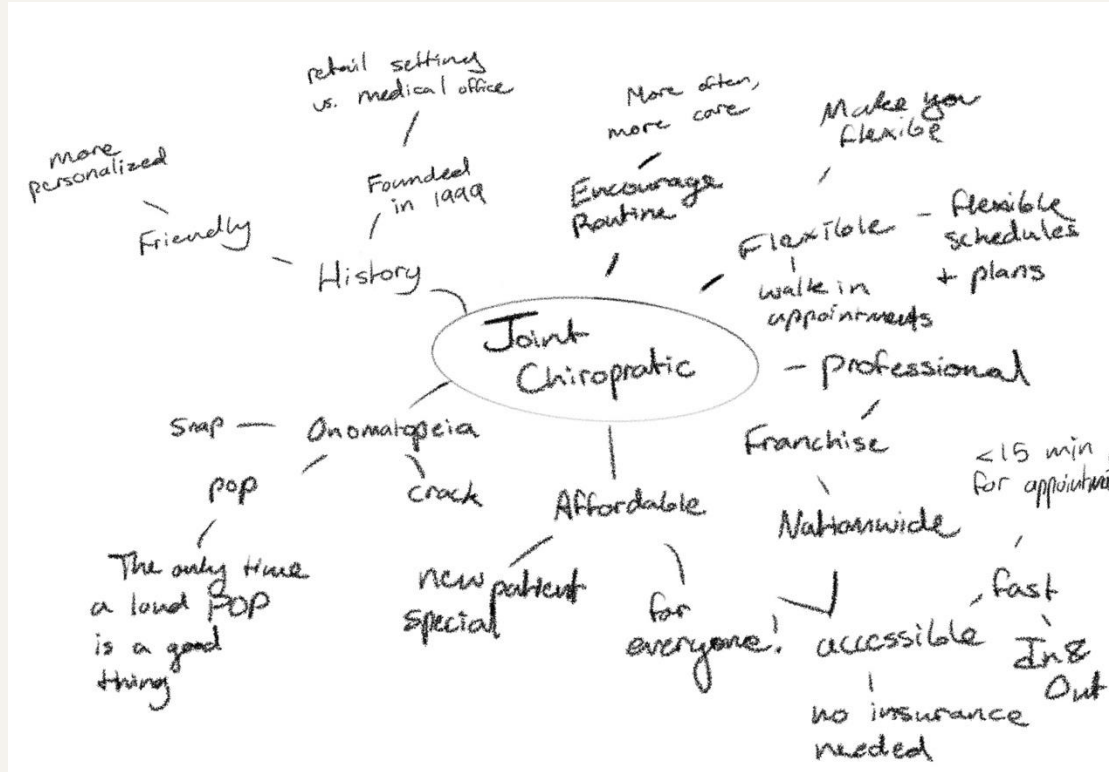 retail setting
vs. medical office
More often,
more care
Make you
flexible
more
personalized
Founded
in 1999
Encourage
Routine
Friendly
History
Flexible
flexible
schedules
+ plans
walk in
appointments
Joint
Chiropratic
professional
Snap
Onomatopeia
pop
crack
Affordable
Franchise
<15 min
for appointm
Nationwide
The only time
a loud POP
is a good
thing
new patient
special
for
everyone!
accessible
fast
In &
Out
no insurance
needed